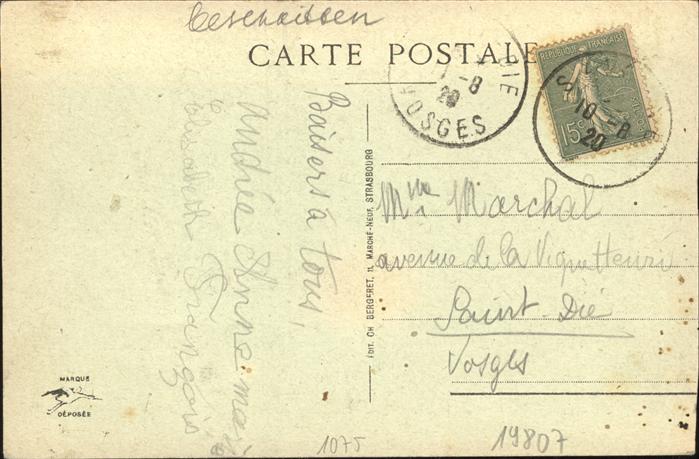 CARTE POSTALE
Baisers à tous,
Andrée Anne marie
Elisabeth François
Mme Marchal
avenue de la Vigne Henri
Saint-Dié
Vosges
RÉPUBLIQUE FRANÇAISE
POSTES
15
DIÉ
-8
20
VOSGES
10 -8
20
ÉDIT. CH. BERGERET, 11, MARCHÉ-NEUF, STRASBOURG
MARQUE
DÉPOSÉE
1075
19807